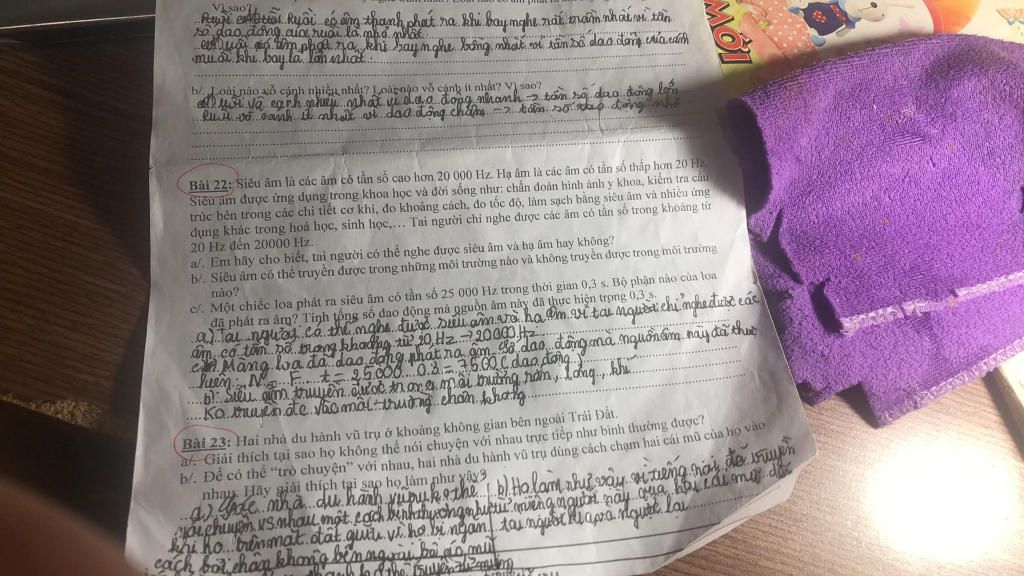 Vì sao?
Ruồi có âm thanh phát ra khi bay nghe rất trầm nhất vì tần
số dao động của ruồi là nhỏ nhất
muỗi khi bay là lớn nhất.
b/. Loài nào vỗ cánh nhiều nhất? Loài nào vỗ cánh ít nhất? Vì sao?
Bài 22: Siêu âm là các âm có tần số cao hơn 20 000 Hz. Hạ âm là các âm có tần số thấp hơn 20 Hz.
Siêu âm được ứng dụng trong khoa học và đời sống như: chẩn đoán hình ảnh y khoa, kiểm tra cấu
trúc bên trong các chi tiết cơ khí, đo khoảng cách, đo tốc độ, làm sạch bằng siêu âm và nhiều ứng
dụng khác trong hoá học, sinh học,… Tai người chỉ nghe được các âm có tần số trong khoảng từ
20 Hz đến 20000 Hz.
a/. Em hãy cho biết, tai người có thể nghe được siêu âm và hạ âm hay không?
b/. Siêu âm có thể truyền được trong những môi trường nào và không truyền được trong môi trường
nào?
c/. Một chiếc loa phát ra siêu âm có tần số 25 000 Hz trong thời gian 0,3 s. Bộ phận nào của loa
đã phát ra âm? Tính tổng số dao động mà nguồn âm này đã thực hiện trong 0,3 s.
a) Tai người có thể nghe được siêu âm và hạ âm vì tai người chỉ nghe được các
âm có tần số trong khoảng từ 20 Hz → 20000 Hz
c) Màng loa đã dao động phát ra âm. Số dao động mà nguồn âm này đã thực
hiện: N = F . t = 25000 . 0,3 = 7500 (dao động)
b) Siêu âm truyền được trong môi trường rắn, lỏng, khí
Ko truyền đc vào môi trường chân không
Bài 23: Hai nhà du hành vũ trụ ở khoảng không gian bên ngoài Trái Đất.
a/. Giải thích tại sao họ không thể nói chuyện với nhau trực tiếp như bình thường được?
b/. Để có thể “trò chuyện” với nhau, hai nhà du hành vũ trụ dùng cách chạm hai cái mũ của họ vào
nhau. Hãy giải thích tại sao họ làm như vậy?
a) Các nhà du hành vũ trụ ko thể
nói chuyện vs nhau một cách bình thường như
khi họ trên mặt đất
cách bởi chân không bên ngoài bộ áo mũ
b) Họ làm như vậy vì tiếng nói đã truyền
từ miệng người này qua hai cái mũ đến
tai người kia và ngược lại
MỚI